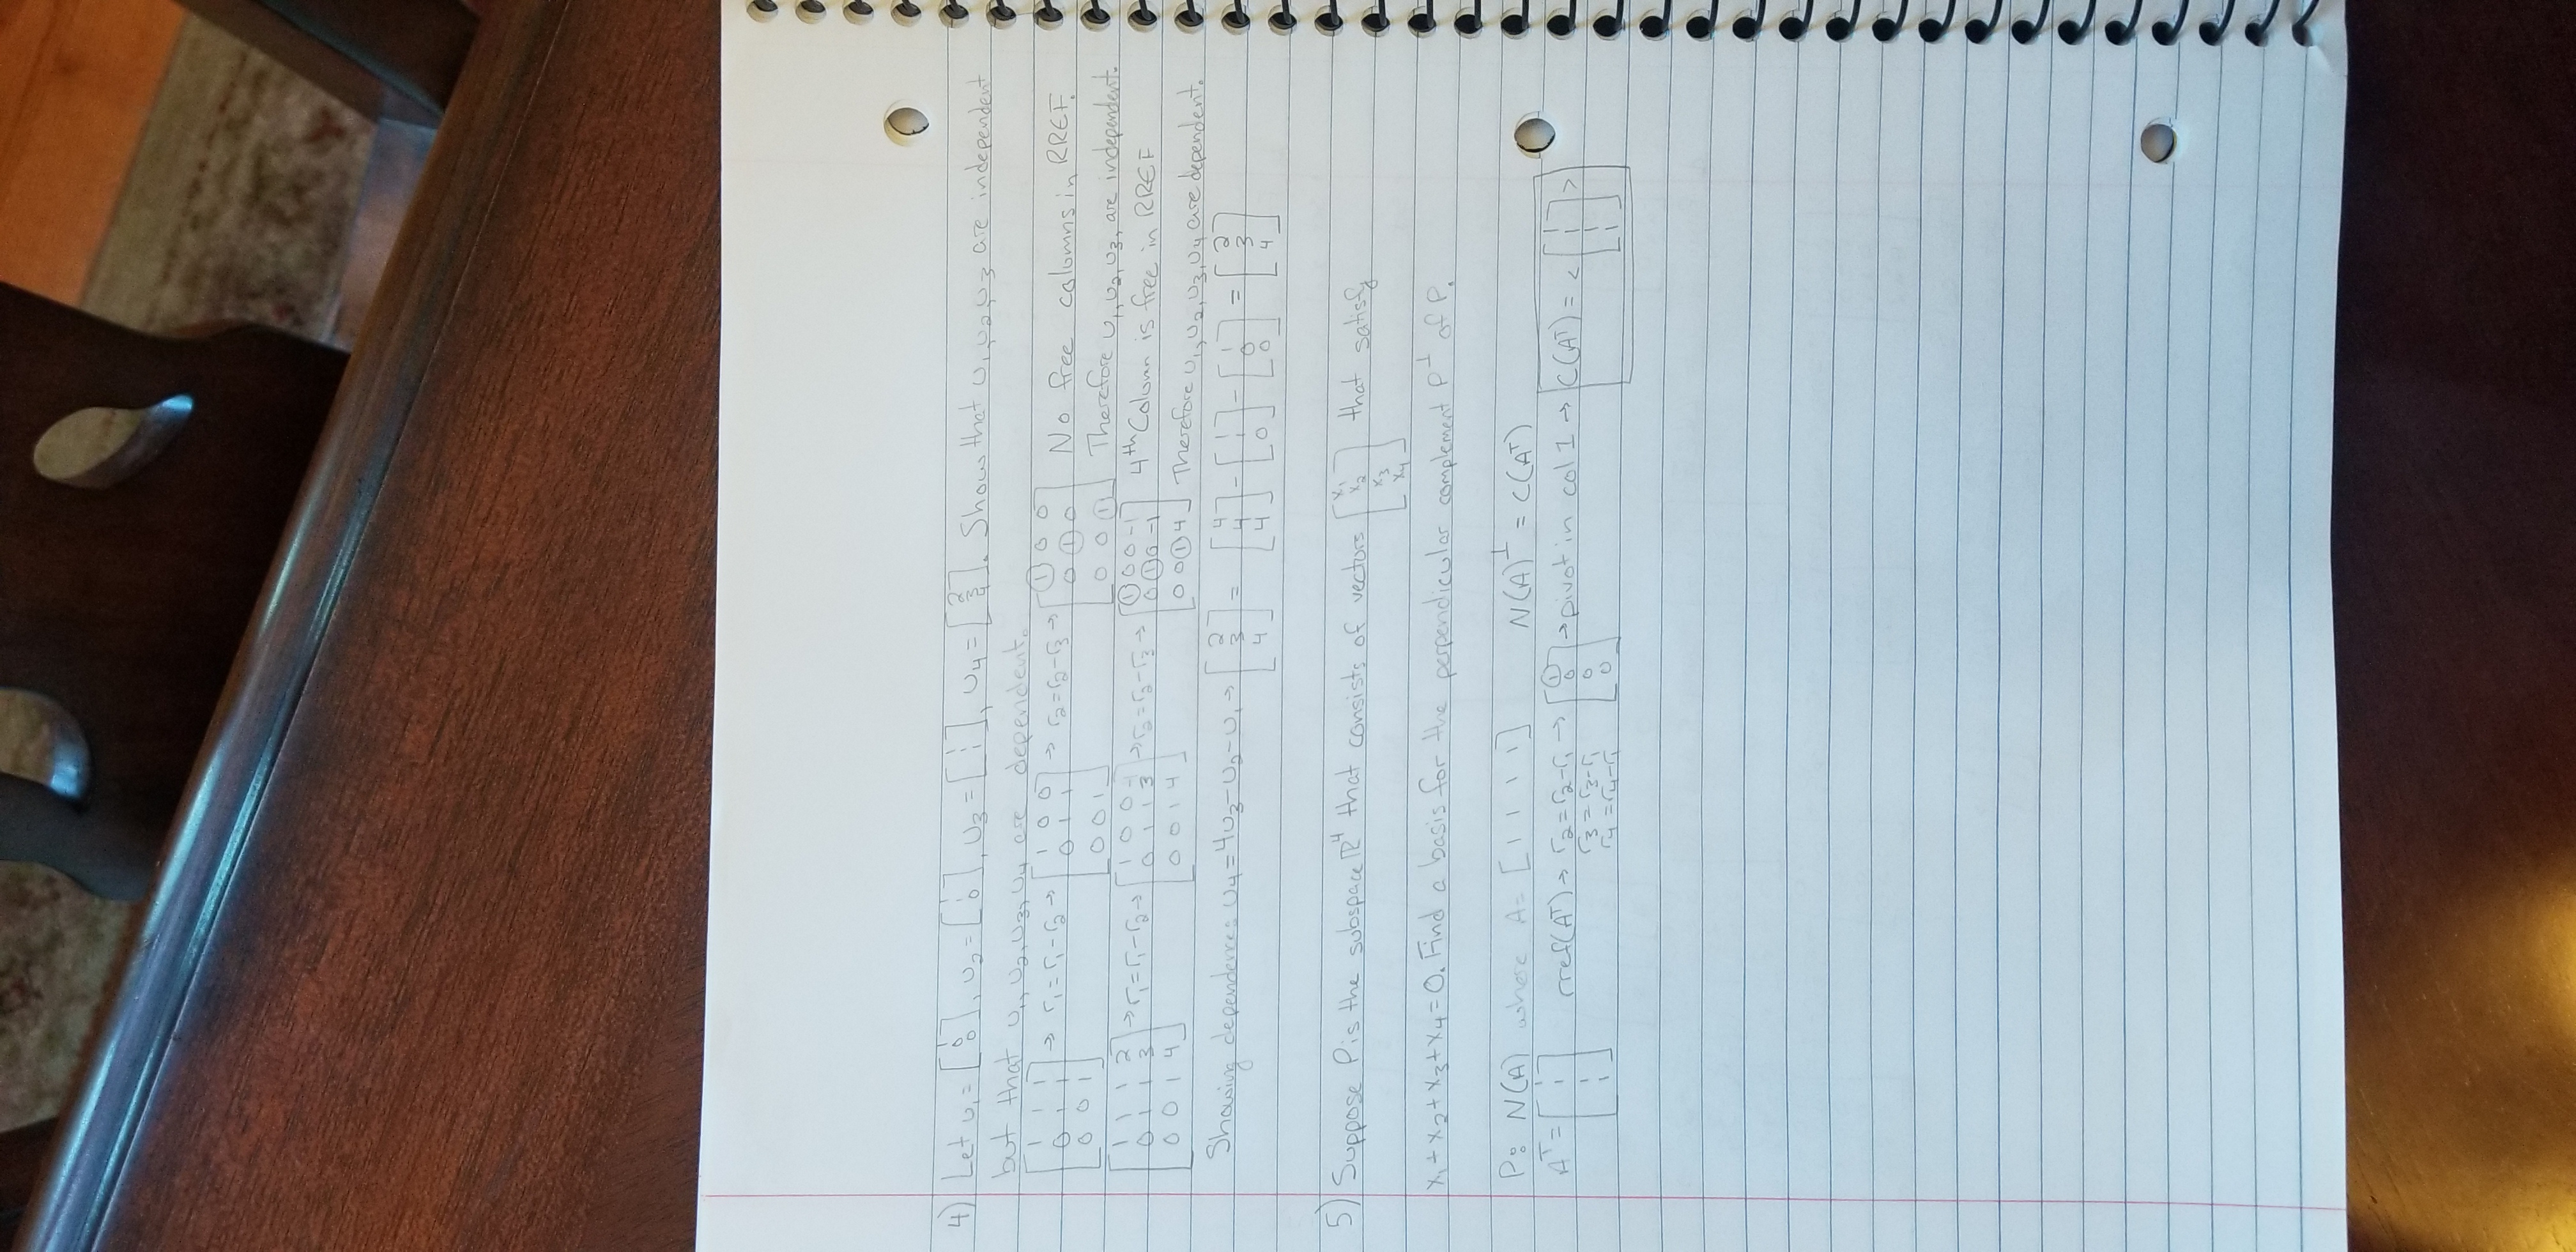 4) Let v₁ = [1 0 0], v₂ = [1 1 0], v₃ = [1 1 1], v₄ = [2 3 4]. Show that v₁, v₂, v₃ are independent
but that v₁, v₂, v₃, v₄ are dependent.
[1 1 1; 0 1 1; 0 0 1] → r₁=r₁-r₂ → [1 0 0; 0 1 1; 0 0 1] → r₂=r₂-r₃ → [1 0 0; 0 1 0; 0 0 1] No free columns in RREF.
Therefore v₁, v₂, v₃, are independent.
[1 1 1 2; 0 1 1 3; 0 0 1 4] → r₁=r₁-r₂ → [1 0 0 -1; 0 1 1 3; 0 0 1 4] → r₂=r₂-r₃ → [1 0 0 -1; 0 1 0 -1; 0 0 1 4] 4th Column is free in RREF
Therefore v₁, v₂, v₃, v₄ are dependent.
Showing dependence: v₄=4v₃-v₂-v₁ → [2 3 4] = [4 4 4] - [1 1 0] - [1 0 0] = [2 3 4]
5) Suppose P is the subspace ℝ⁴ that consists of vectors [x₁ x₂ x₃ x₄] that satisfy
x₁+x₂+x₃+x₄=0. Find a basis for the perpendicular complement P⊥ of P.
P: N(A) where A= [1 1 1 1] N(A)⊥ = C(Aᵀ)
Aᵀ= [1 1 1 1] rref(Aᵀ) → r₂=r₂-r₁ r₃=r₃-r₁ r₄=r₄-r₁ → [1 0 0 0] → pivot in col 1 → C(Aᵀ) = < [1 1 1 1] >